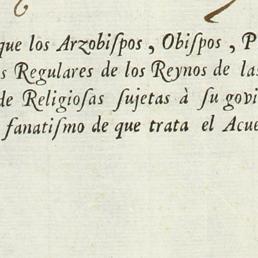 que los Arzobiſpos, Obiſpos, P
s Regulares de los Reynos de las
de Religioſas ſujetas à ſu govi
fanatiſmo de que trata el Acue